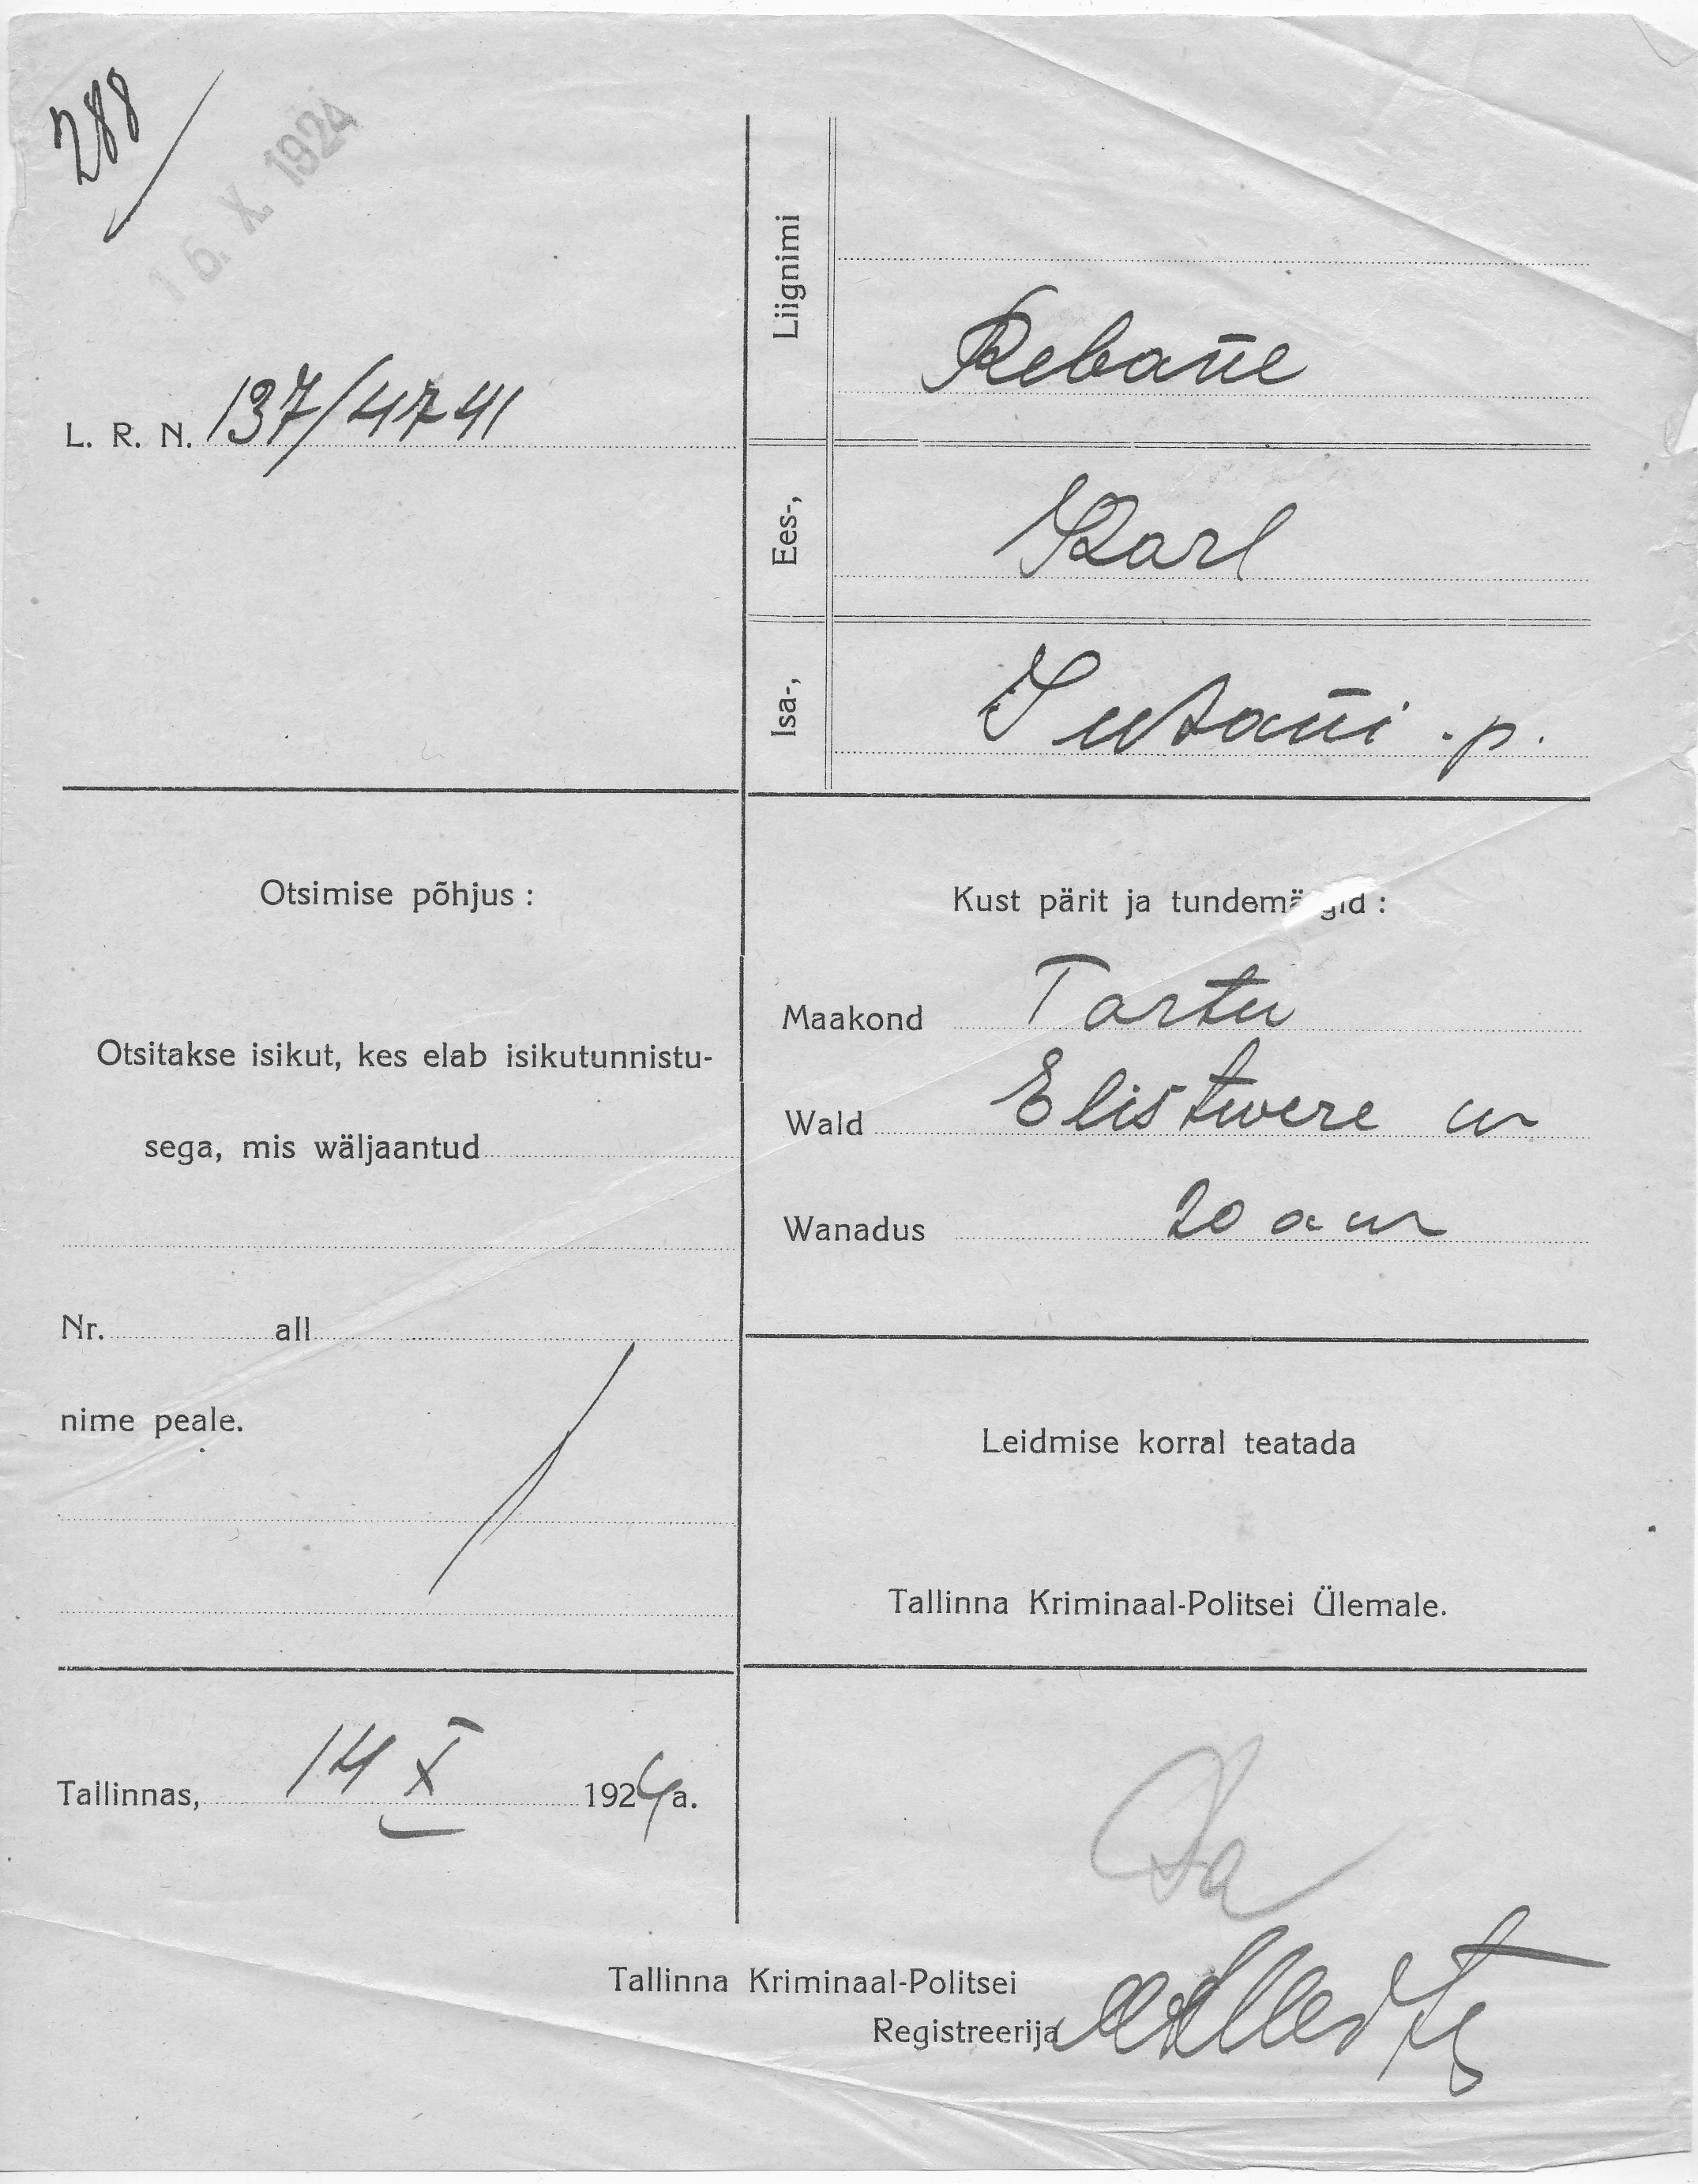 288
16. X. 1924
L. R. N. 137/4741
Liignimi
Rebane
Ees-,
Karl
Isa-,
p.
Otsimise põhjus :
Otsitakse isikut, kes elab isikutunnistu-
sega, mis wäljaantud
Nr. all
nime peale.
Kust pärit ja tundemärgid :
Maakond Tartu
Wald Elistwere w
Wanadus 20 a w
Leidmise korral teatada
Tallinna Kriminaal-Politsei Ülemale.
Tallinnas, 14 X 1924 a.
Tallinna Kriminaal-Politsei
Registreerija